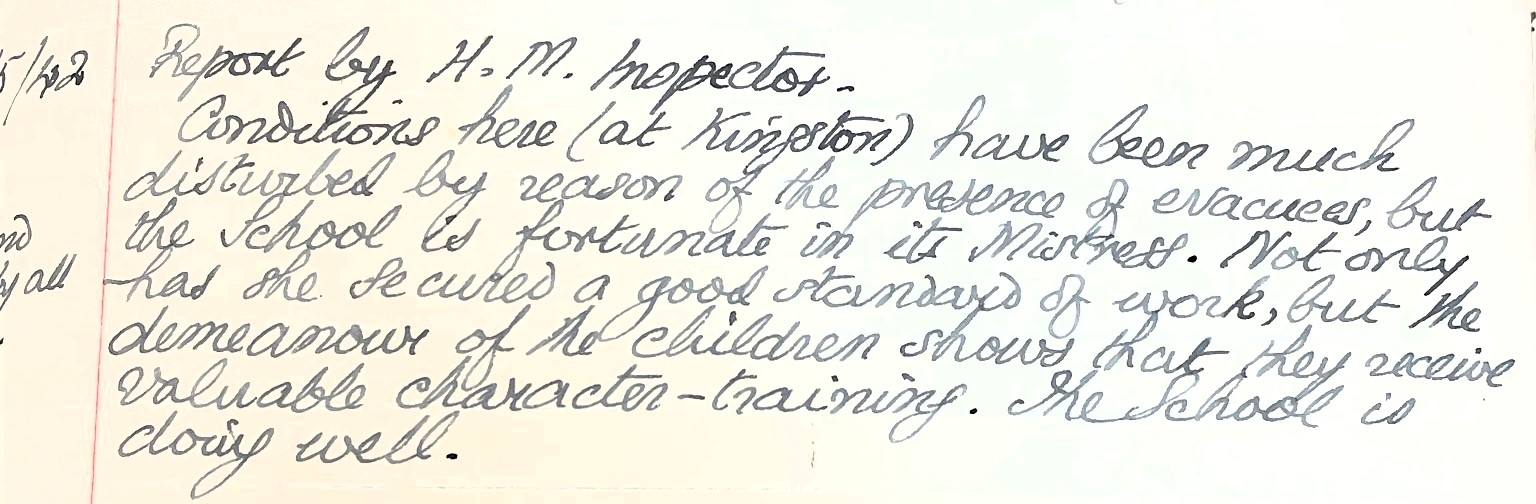 5/42 Report by H. M. Inspector.
Conditions here (at Kingston) have been much
disturbed by reason of the presence of evacuees, but
the School is fortunate in its Mistress. Not only
has she secured a good standard of work, but the
demeanour of the children shows that they receive
valuable character-training. The School is
doing well.
nd
by all